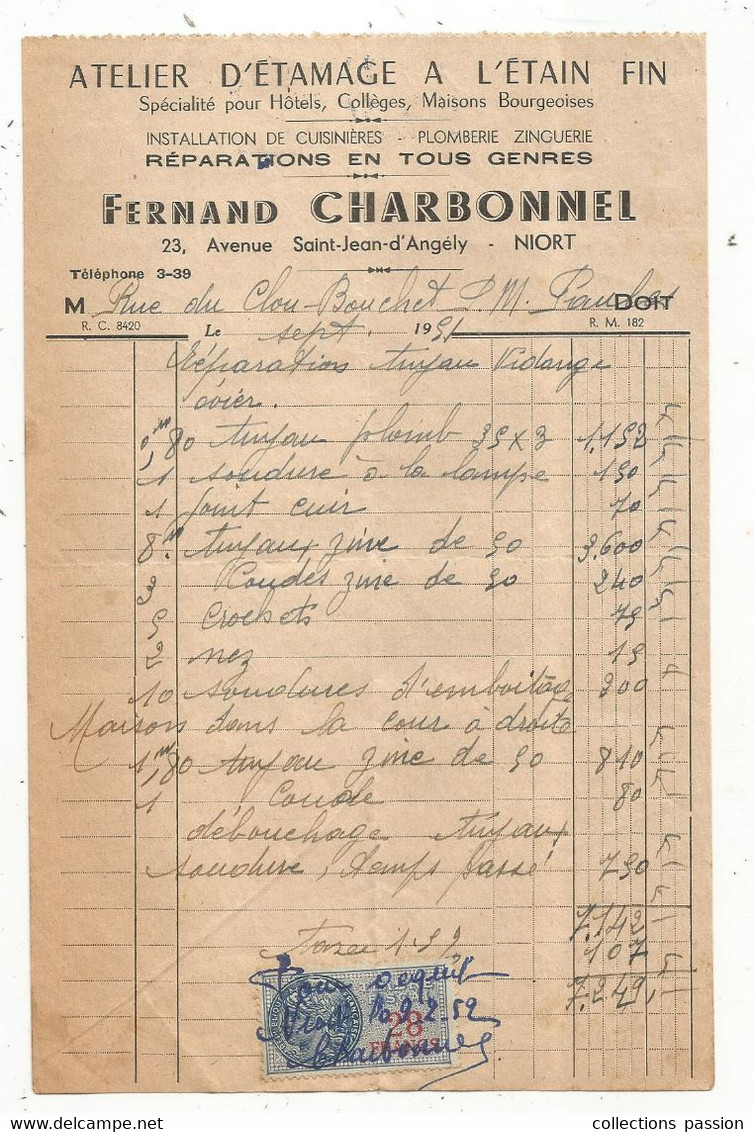 ATELIER D'ÉTAMAGE A L'ÉTAIN FIN
Spécialité pour Hôtels, Collèges, Maisons Bourgeoises
INSTALLATION DE CUISINIÈRES - PLOMBERIE ZINGUERIE
RÉPARATIONS EN TOUS GENRES
FERNAND CHARBONNEL
23, Avenue Saint-Jean-d'Angély - NIORT
Téléphone 3-39
M Rue du Clou-Bouchet P.M. DOIT
R. C. 8420 Le sept. 1951 R. M. 182
Réparation tuyau Vidange
évier.
0,m80 tuyau plomb 35 x 3 1.152
1 soudure à la lampe 150
1 joint cuir 70
8.m tuyaux zinc de 50 3.600
3 Coudes zinc de 50 240
5 Crochets 75
2 nez 15
10 soudures d'emboitag 200
Maison dans la cour à droite
1,m80 tuyau zinc de 50 810
1 Coude 80
débouchage tuyaux
soudure, temps passé 750
7.142
Taxe 1.5 107
7.249,
Pour acquit
Niort le 2.2.52
Charbonnel
28
FRANCS
collections passion